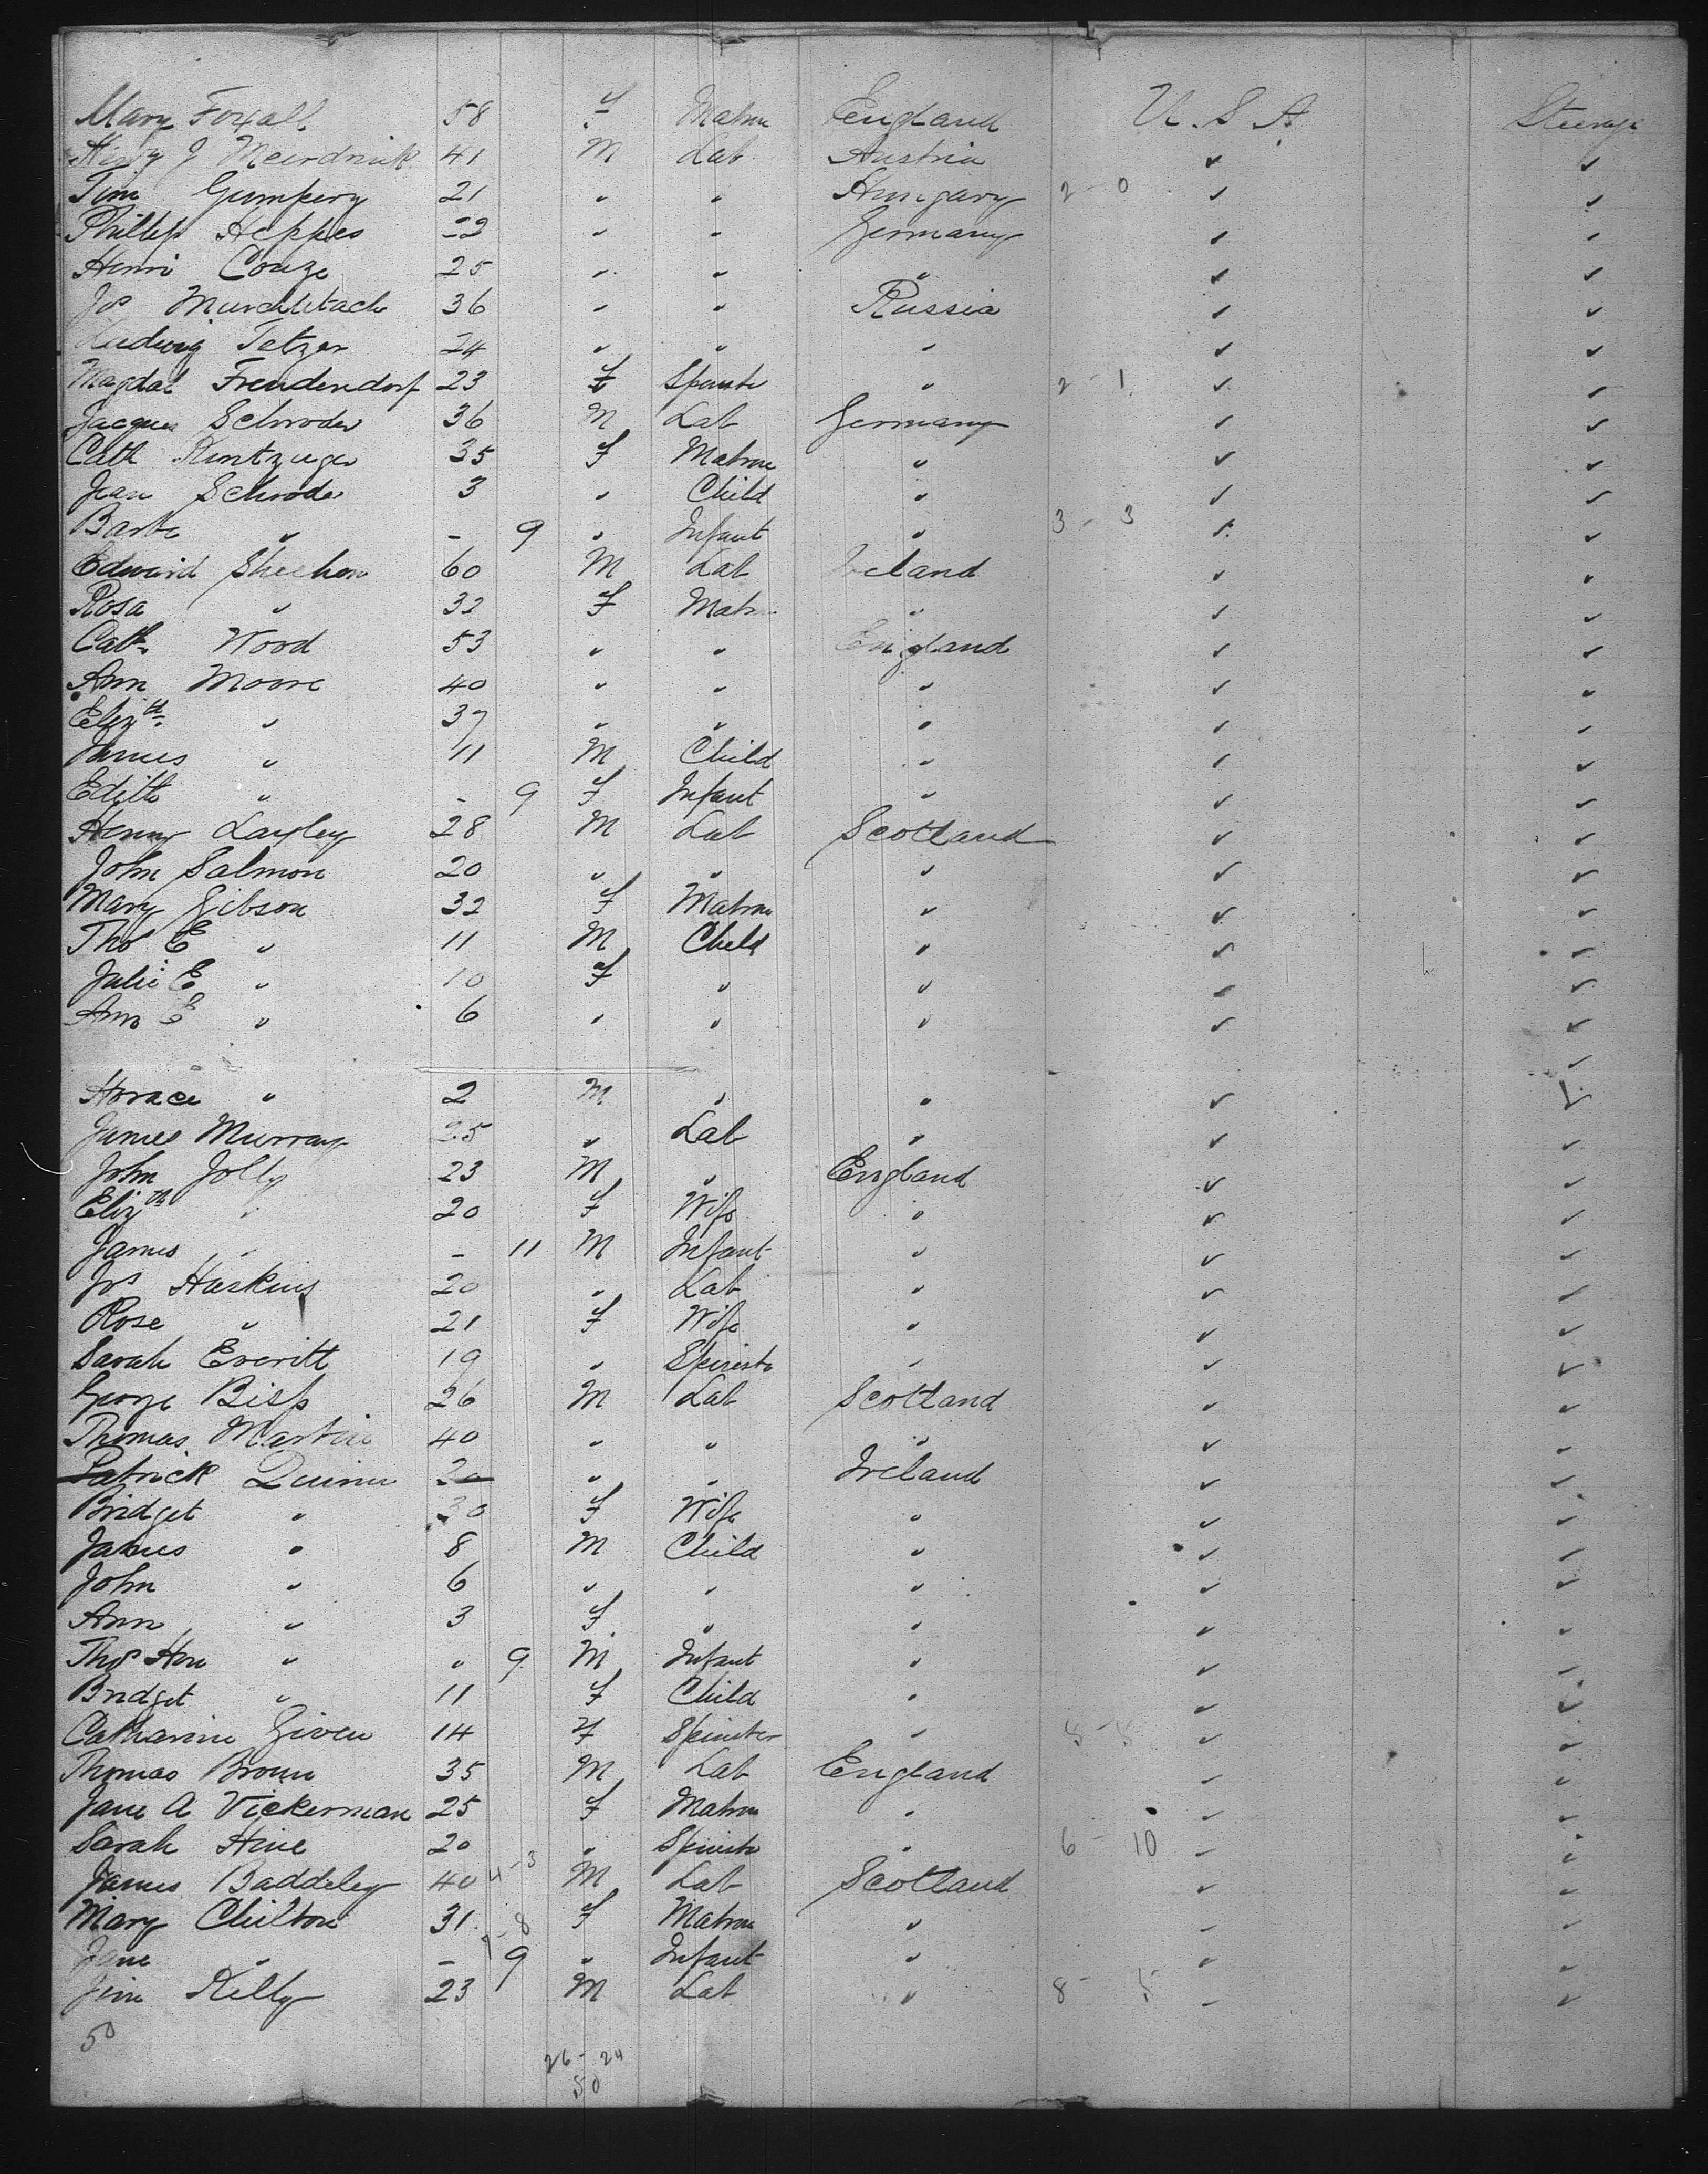 Mary Foxall 58 F Matron England U.S.A. Steerage
41 M Lab Austria ✓ ✓
Tim Gumpery 21 " " Hungary 2-0 ✓ ✓
Phillip Heppes 22 " " Germany ✓ ✓
Henri Conze 25 " " " ✓ ✓
Jos 36 " " Russia ✓ ✓
Ludwig Tetzer 24 " " " ✓ ✓
Magdal Freudendorf 23 F Spinstr " 2-1 ✓ ✓
Jacques Schroder 36 M Lab Germany ✓ ✓
Cath 35 F Matron " ✓ ✓
Jean Schroder 3 " Child " ✓ ✓
Barbe " - 9 " Infant " 3-3 ✓ ✓
Edward Sheehan 60 M Lab Ireland ✓ ✓
Rosa " 32 F Matrn " ✓ ✓
Cath Wood 53 " " England ✓ ✓
Ann Moore 40 " " " ✓ ✓
Elizth " 37 " " " ✓ ✓
James " 11 M Child " ✓ ✓
Edith " - 9 F Infant " ✓ ✓
Henry Layley 28 M Lab Scotland ✓ ✓
John Salmon 20 " " " ✓ ✓
Mary Gibson 32 F Matron " ✓ ✓
Thos E " 11 M Child " ✓ ✓
Julie E " 10 F " " ✓ ✓
Ann E " 6 " " " ✓ ✓
Horace " 2 M " " ✓ ✓
James Murray 25 " Lab " ✓ ✓
John Jolly 23 M " England ✓ ✓
Elizth " 20 F Wife " ✓ ✓
James " - 11 M Infant " ✓ ✓
Jos Haskins 20 " Lab " ✓ ✓
Rose " 21 F Wife " ✓ ✓
Sarah Everitt 19 " Spinstr " ✓ ✓
George Biss 26 M Lab Scotland ✓ ✓
Thomas Martin 40 " " " ✓ ✓
Patrick Quinn " " Ireland ✓ ✓
Bridget " 30 F Wife " ✓ ✓
James " 8 M Child " ✓ ✓
John " 6 " " " ✓ ✓
Ann " 3 F " " ✓ ✓
Thos Hon " " 9 M Infant " ✓ ✓
Bridget " 11 F Child " ✓ ✓
Catharine Given 14 F Spinster " ✓ ✓
Thomas Brown 35 M Lab England ✓ ✓
Jane A Vickerman 25 F Matron " ✓ ✓
Sarah Hine 20 " Spinstr " 6-10 ✓ ✓
James Baddeley 40 4-3 M Lab Scotland ✓ ✓
Mary Chilton 31 F Matron " ✓ ✓
Jane " - 9 " Infant " ✓ ✓
Jim Kelly 23 M Lab " 8-5 ✓ ✓
50
26-24
50